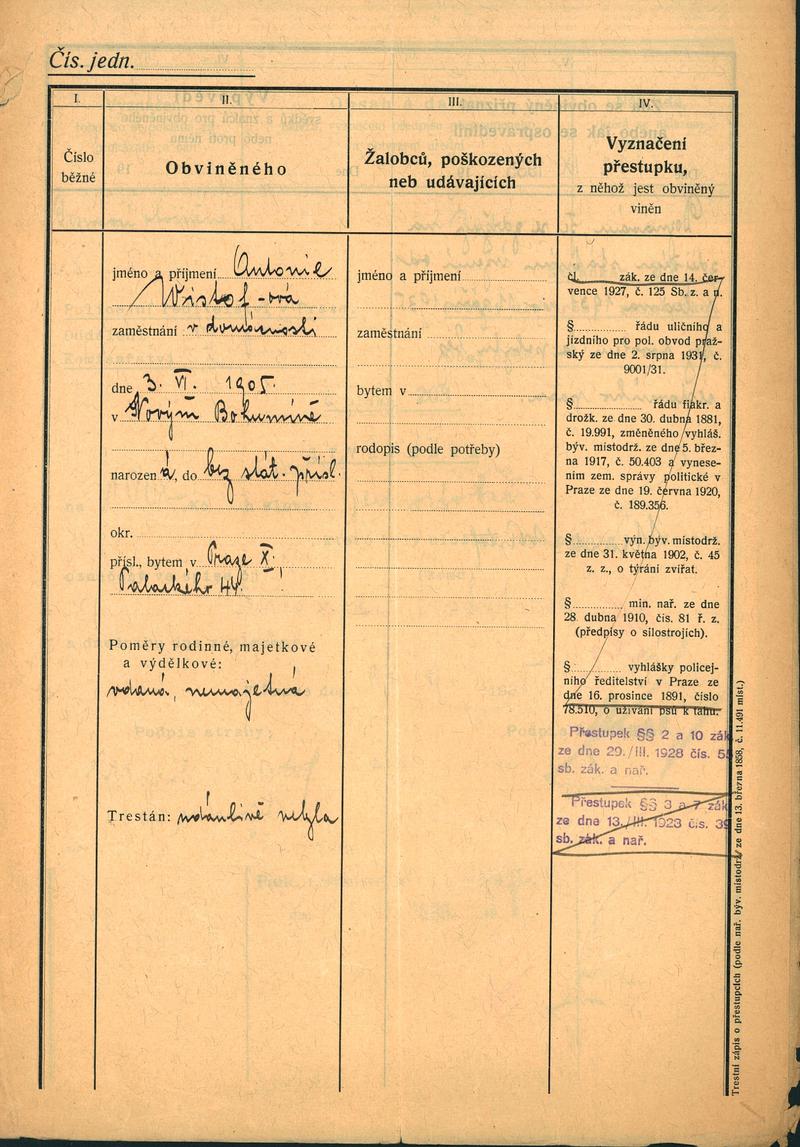 Čís. jedn.
I.
Číslo
běžné
II.
Obviněného
III.
Žalobců, poškozených
neb udávajících
IV.
Vyznačení
přestupku,
z něhož jest obviněný
viněn
jméno a příjmení Antonie
Wistof-ová
zaměstnání v domácnosti
dne 3. VI. 1905.
v Novým Bohumíně
narozen á, do bez stát. přísl.
okr.
přísl., bytem v Praze X.,
Palackého 44.
Poměry rodinné, majetkové
a výdělkové:
vdaná, nemajetná
Trestán: údánlivě nebyla
jméno a příjmení
zaměstnání
bytem v
rodopis (podle potřeby)
čl. zák. ze dne 14. čer-
vence 1927, č. 125 Sb. z. a n.
§ řádu uličního a
jízdního pro pol. obvod praž-
ský ze dne 2. srpna 1931, č.
9001/31.
§ řádu fiakr. a
drožk. ze dne 30. dubna 1881,
č. 19.991, změněného vyhláš.
býv. místodrž. ze dne 5. břez-
na 1917, č. 50.403 a vynese-
ním zem. správy politické v
Praze ze dne 19. června 1920,
č. 189.356.
§ výn. býv. místodrž.
ze dne 31. května 1902, č. 45
z. z., o týrání zvířat.
§ min. nař. ze dne
28. dubna 1910, čís. 81 ř. z.
(předpisy o silostrojích).
§ vyhlášky policej-
ního ředitelství v Praze ze
dne 16. prosince 1891, číslo
78.510, o užívání psů k tahu.
Přestupek §§ 2 a 10 zák
ze dne 29./III. 1928 čís. 55
sb. zák. a nař.
Přestupek §§ 3 a 7 zák
ze dne 13./III. 1923 čís. 39
sb. zák. a nař.
Trestní zápis o přestupcích (podle nař. býv. místodrž. ze dne 13. března 1858, č. 11.491 míst.)